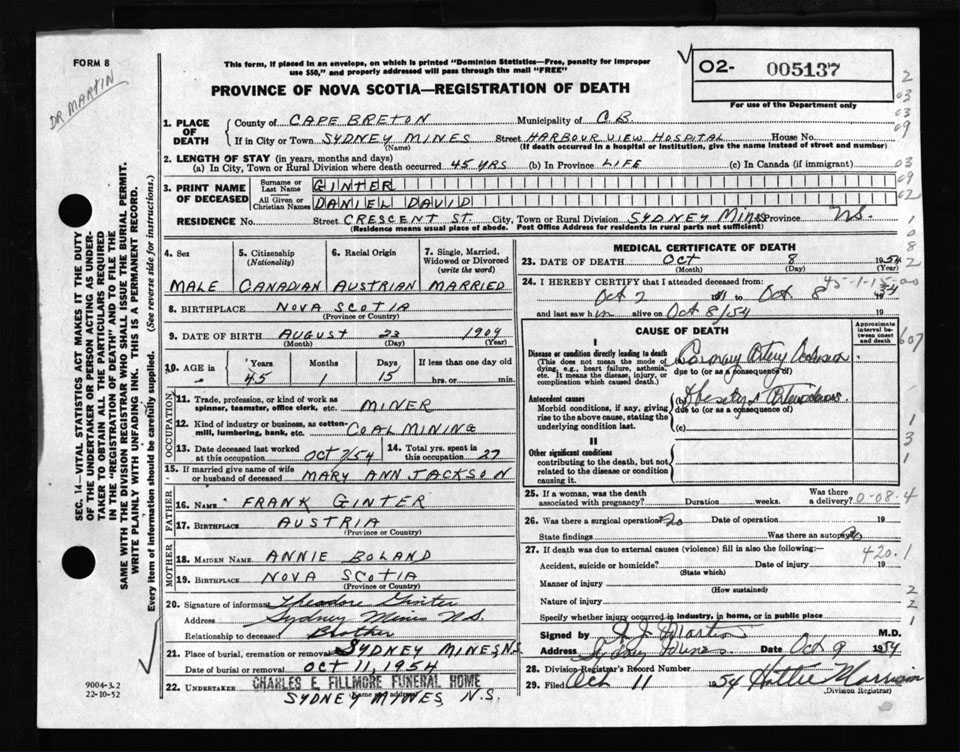 FORM 8
DR MARTIN
This form, if placed in an envelope, on which is printed "Dominion Statistics—Free, penalty for improper
use $50," and properly addressed will pass through the mail "FREE"
PROVINCE OF NOVA SCOTIA—REGISTRATION OF DEATH
O2- 005137
For use of the Department only
1. PLACE OF DEATH
County of CAPE BRETON Municipality of C.B.
If in City or Town SYDNEY MINES Street HARBOUR VIEW HOSPITAL House No.
(Name) (If death occurred in a hospital or institution, give the name instead of street and number)
2. LENGTH OF STAY (in years, months and days)
(a) In City, Town or Rural Division where death occurred 45 YRS (b) In Province LIFE (c) In Canada (if immigrant)
3. PRINT NAME OF DECEASED
Surname or Last Name GINTER
All Given or Christian Names DANIEL DAVID
RESIDENCE No. Street CRESCENT ST. City, Town or Rural Division SYDNEY MINES Province N.S.
(Residence means usual place of abode. Post Office Address for residents in rural parts not sufficient)
4. Sex
MALE
5. Citizenship (Nationality)
CANADIAN
6. Racial Origin
AUSTRIAN
7. Single, Married, Widowed or Divorced (write the word)
MARRIED
8. BIRTHPLACE NOVA SCOTIA
(Province or Country)
9. DATE OF BIRTH AUGUST 23 1909
(Month) (Day) (Year)
10. AGE in Years Months Days If less than one day old
45 1 15 hrs. or min.
OCCUPATION
11. Trade, profession, or kind of work as spinner, teamster, office clerk, etc. MINER
12. Kind of industry or business, as cotton-mill, lumbering, bank, etc. COAL MINING
13. Date deceased last worked at this occupation OCT 7/54
14. Total yrs. spent in this occupation 27
15. If married give name of wife or husband of deceased MARY ANN JACKSON
FATHER
16. NAME FRANK GINTER
17. BIRTHPLACE AUSTRIA
(Province or Country)
MOTHER
18. MAIDEN NAME ANNIE BOLAND
19. BIRTHPLACE NOVA SCOTIA
(Province or Country)
20. Signature of informant Theodore Ginter
Address Sydney Mines N.S.
Relationship to deceased Brother
21. Place of burial, cremation or removal SYDNEY MINES N.S.
Date of burial or removal OCT 11, 1954
22. UNDERTAKER CHARLES E. FILLMORE FUNERAL HOME
SYDNEY MINES, N.S.
MEDICAL CERTIFICATE OF DEATH
23. DATE OF DEATH Oct 8 1954
(Month) (Day) (Year)
24. I HEREBY CERTIFY that I attended deceased from:
Oct 2 Oct 8 1954
and last saw him alive on Oct 8/54 19
CAUSE OF DEATH
Approximate interval between onset and death
I
Disease or condition directly leading to death
(This does not mean the mode of dying, e.g., heart failure, asthenia, etc. It means the disease, injury, or complication which caused death.)
Coronary Artery Occlusion
due to (or as a consequence of)
Antecedent causes
Morbid conditions, if any, giving rise to the above cause, stating the underlying condition last.
(b) Obesity
due to (or as a consequence of)
(c)
II
Other significant conditions
contributing to the death, but not related to the disease or condition causing it.
25. If a woman, was the death associated with pregnancy? Duration weeks. Was there a delivery?
0-08.4
26. Was there a surgical operation? no Date of operation 19
State findings Was there an autopsy? no
27. If death was due to external causes (violence) fill in also the following:—
420.1
Accident, suicide or homicide? Date of injury 19
(State which)
Manner of injury
(How sustained)
Nature of injury
Specify whether injury occurred in industry, in home, or in public place
Signed by Martin M.D.
Address Sydney Mines. Date Oct 9 1954
28. Division Registrar's Record Number
29. Filed Oct 11 1954 Hattie Morrison
(Division Registrar)
SEC. 14—VITAL STATISTICS ACT MAKES IT THE DUTY
OF THE UNDERTAKER OR PERSON ACTING AS UNDER-
TAKER TO OBTAIN ALL THE PARTICULARS REQUIRED
IN THE "REGISTRATION OF DEATH" AND TO FILE THE
SAME WITH THE DIVISION REGISTRAR WHO SHALL ISSUE THE BURIAL PERMIT.
WRITE PLAINLY WITH UNFADING INK. THIS IS A PERMANENT RECORD.
Every item of information should be carefully supplied. (See reverse side for instructions.)
9004-3.2
22-10-52